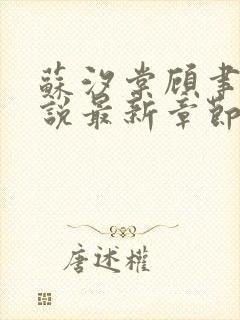 蘇汐棠顧聿
說最新章節
唐述權